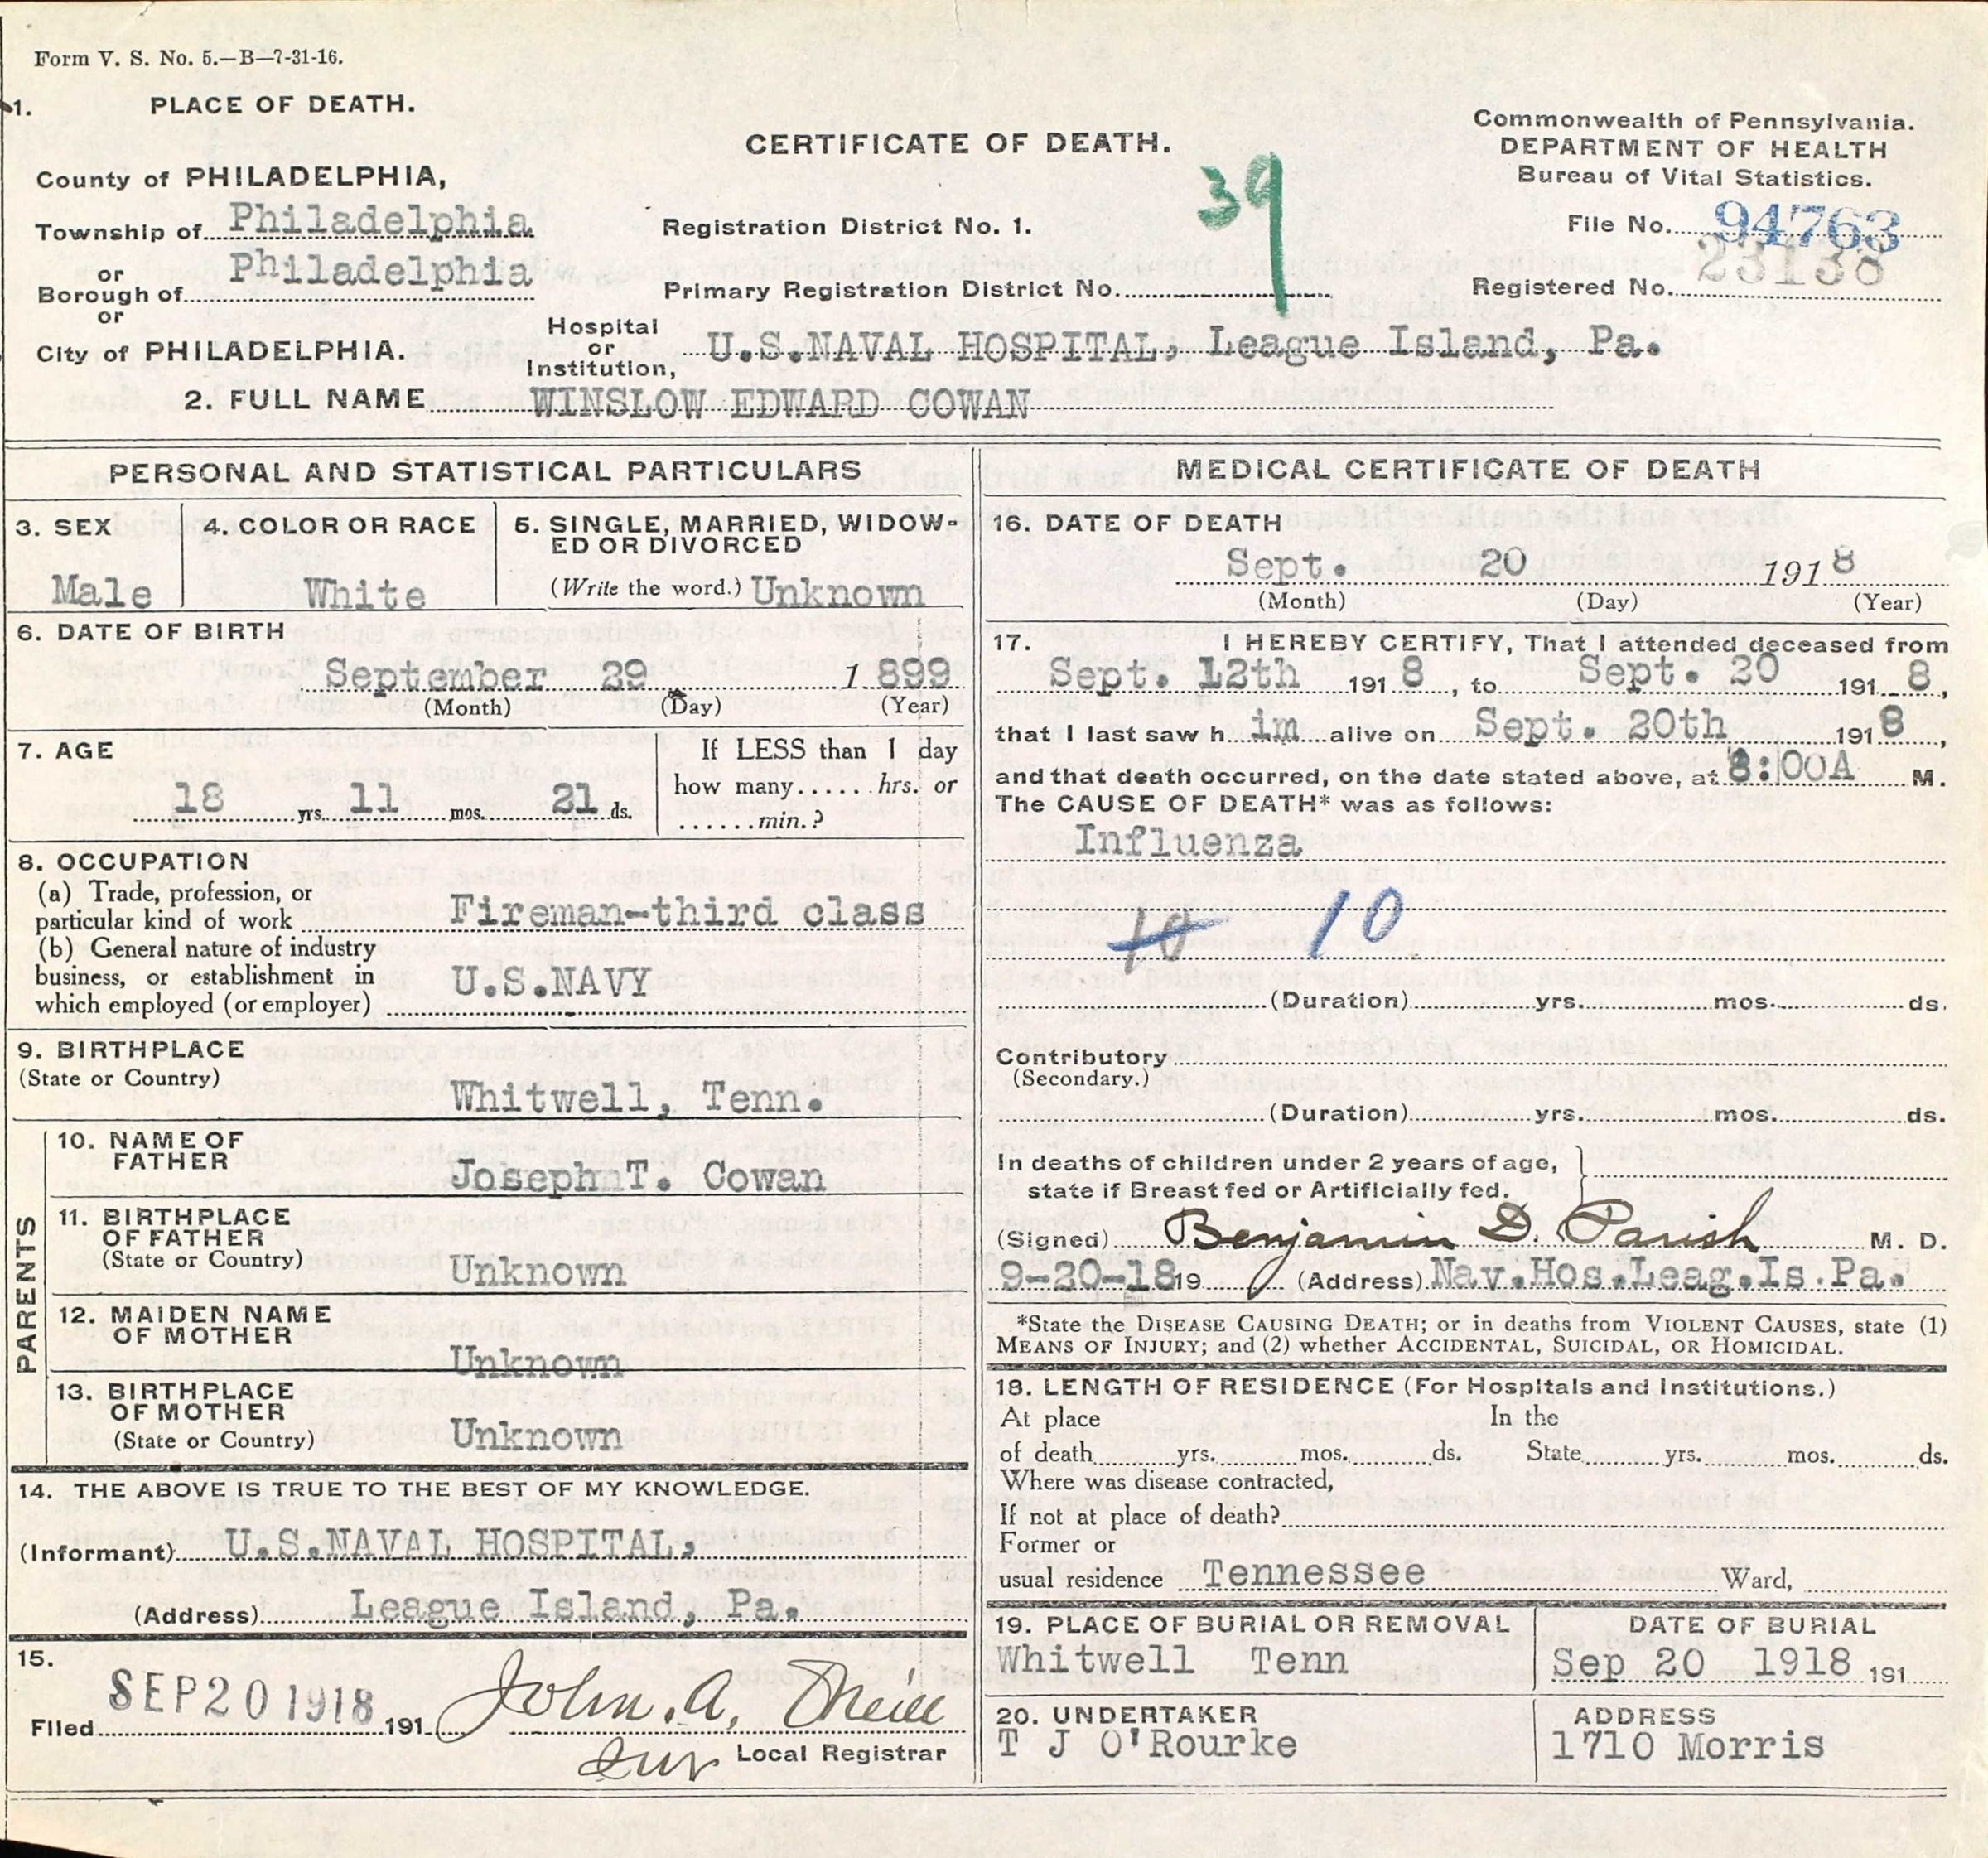 Form V. S. No. 5.—B—7-31-16.
1. PLACE OF DEATH.
County of PHILADELPHIA,
Township of Philadelphia
or
Borough of Philadelphia
or
City of PHILADELPHIA.
CERTIFICATE OF DEATH.
39
Registration District No. 1.
Primary Registration District No.
Commonwealth of Pennsylvania.
DEPARTMENT OF HEALTH
Bureau of Vital Statistics.
File No. 94763
Registered No. 23138
Hospital
or
Institution, U.S.NAVAL HOSPITAL, League Island, Pa.
2. FULL NAME WINSLOW EDWARD COWAN
PERSONAL AND STATISTICAL PARTICULARS
3. SEX
Male
4. COLOR OR RACE
White
5. SINGLE, MARRIED, WIDOW-
ED OR DIVORCED
(Write the word.) Unknown
6. DATE OF BIRTH
September 29 1 899
(Month) (Day) (Year)
7. AGE
18 yrs. 11 mos. 21 ds.
If LESS than 1 day
how many...... hrs. or
......min.?
8. OCCUPATION
(a) Trade, profession, or
particular kind of work Fireman-third class
(b) General nature of industry
business, or establishment in
which employed (or employer) U.S.NAVY
9. BIRTHPLACE
(State or Country)
Whitwell, Tenn.
PARENTS
10. NAME OF
FATHER
Joseph T. Cowan
11. BIRTHPLACE
OF FATHER
(State or Country)
Unknown
12. MAIDEN NAME
OF MOTHER
Unknown
13. BIRTHPLACE
OF MOTHER
(State or Country)
Unknown
14. THE ABOVE IS TRUE TO THE BEST OF MY KNOWLEDGE.
(Informant) U.S.NAVAL HOSPITAL,
(Address) League Island, Pa.
15.
Filed SEP 20 1918 191 John. A,
Local Registrar
MEDICAL CERTIFICATE OF DEATH
16. DATE OF DEATH
Sept. 20 1918
(Month) (Day) (Year)
17. I HEREBY CERTIFY, That I attended deceased from
Sept. 12th 1918, to Sept. 20 1918,
that I last saw him alive on Sept. 20th 1918,
and that death occurred, on the date stated above, at 8:00A M.
The CAUSE OF DEATH* was as follows:
Influenza
10 10
(Duration) yrs. mos. ds.
Contributory
(Secondary.)
(Duration) yrs. mos. ds.
In deaths of children under 2 years of age,
state if Breast fed or Artificially fed.
(Signed) Benjamin D. Parish M. D.
9-20-18 19 (Address) Nav.Hos.Leag.Is.Pa.
*State the DISEASE CAUSING DEATH; or in deaths from VIOLENT CAUSES, state (1)
MEANS OF INJURY; and (2) whether ACCIDENTAL, SUICIDAL, OR HOMICIDAL.
18. LENGTH OF RESIDENCE (For Hospitals and Institutions.)
At place In the
of death yrs. mos. ds. State yrs. mos. ds.
Where was disease contracted,
If not at place of death?
Former or
usual residence Tennessee Ward,
19. PLACE OF BURIAL OR REMOVAL
Whitwell Tenn
DATE OF BURIAL
Sep 20 1918 191
20. UNDERTAKER
T J O'Rourke
ADDRESS
1710 Morris